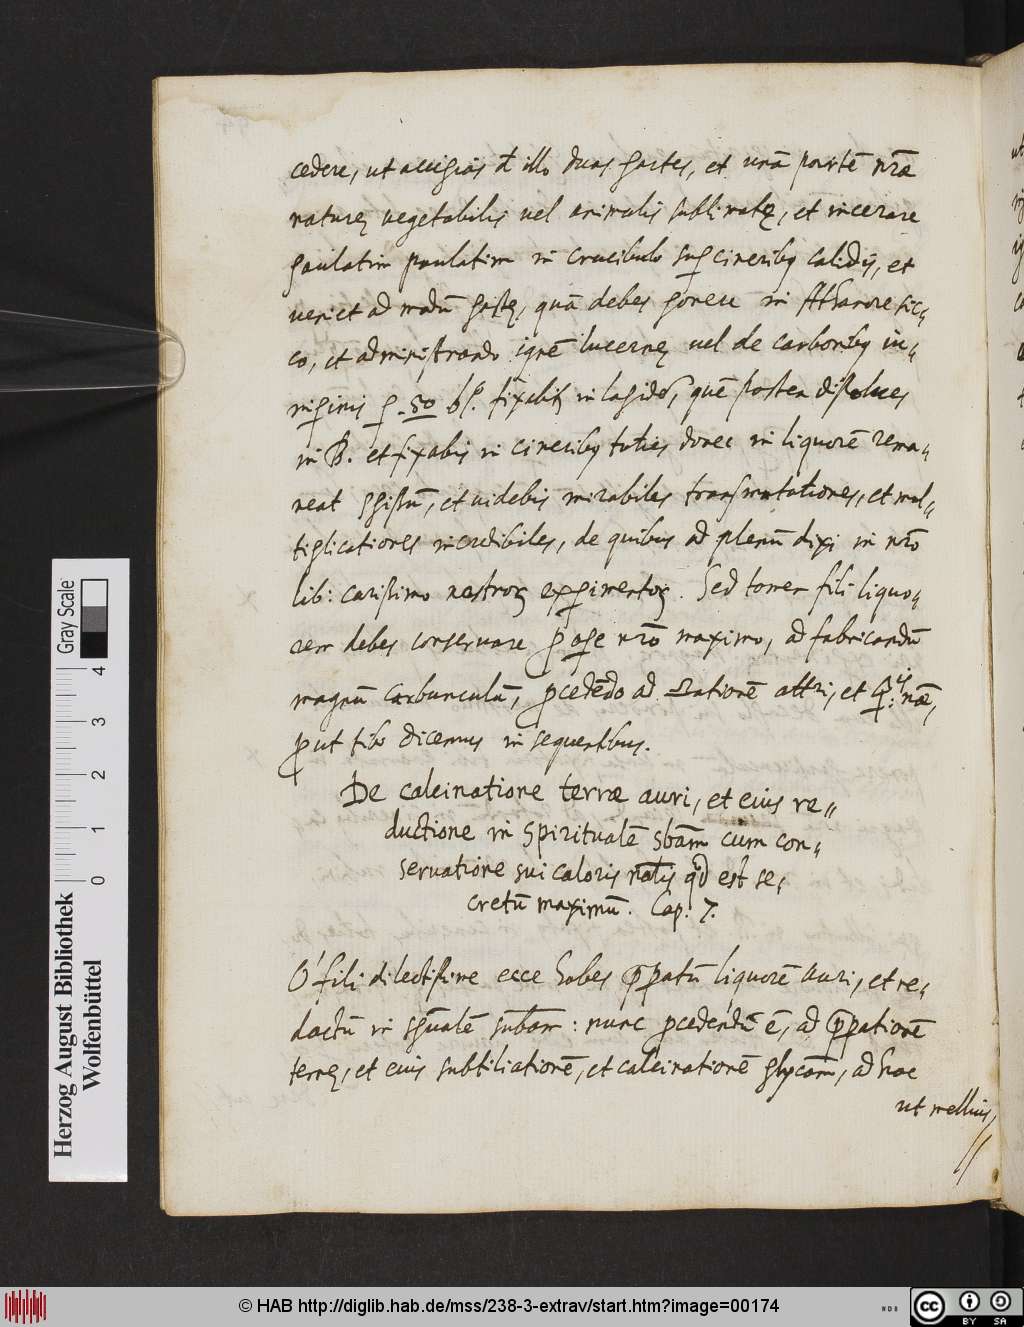 cedere, ut accipias đ illo duas partes, et unā partē nrāe
naturę vegetabilis vel animalis sublimatę, et incerare
paulatim paulatim in crucibulo sup cineribȝ calidis, et
veniet ad modū pastę, quā debes ponere in Athanore sic,,
co, et administrando ignē lucernę vel de carbonibȝ in,,
in lapidē, quē postea dissolues
in B. et fixabis in cineribȝ toties donec in liquorē rema,,
neat spissū, et videbis mirabiles transmutationes, et mul,,
tiplicationes incredibiles, de quibus ad plenū dixi in nr̄o
lib: carissimo nostroꝝ expimentoꝝ. Sed tamen fili liquo,,
rem debes conservare ꝓ ope nr̄o maximo, ad fabricandū
magnū carbunculū, ꝓcedēdo ad attri, et
ꝓut tibi dicemus in sequentibus.
De calcinatione terræ auri, et eius re,,
ductione in spiritualē sbām cum con,,
servatione sui caloris natlis qd est se,,
cretū maximū. Cap: 7.
O' fili dilectissime ecce habes ꝑparatū liquorē auri, et re,,
dactū in spualē subām: nunc ꝓcedendū ē, ad ꝑparationē
terrę, et eius subtiliationē, et calcinationē physicam, ad hoc
ut mellius,
Herzog August Bibliothek
Wolfenbüttel
0 1 2 3 4
Gray Scale
© HAB http://diglib.hab.de/mss/238-3-extrav/start.htm?image=00174
NDB
cc BY SA